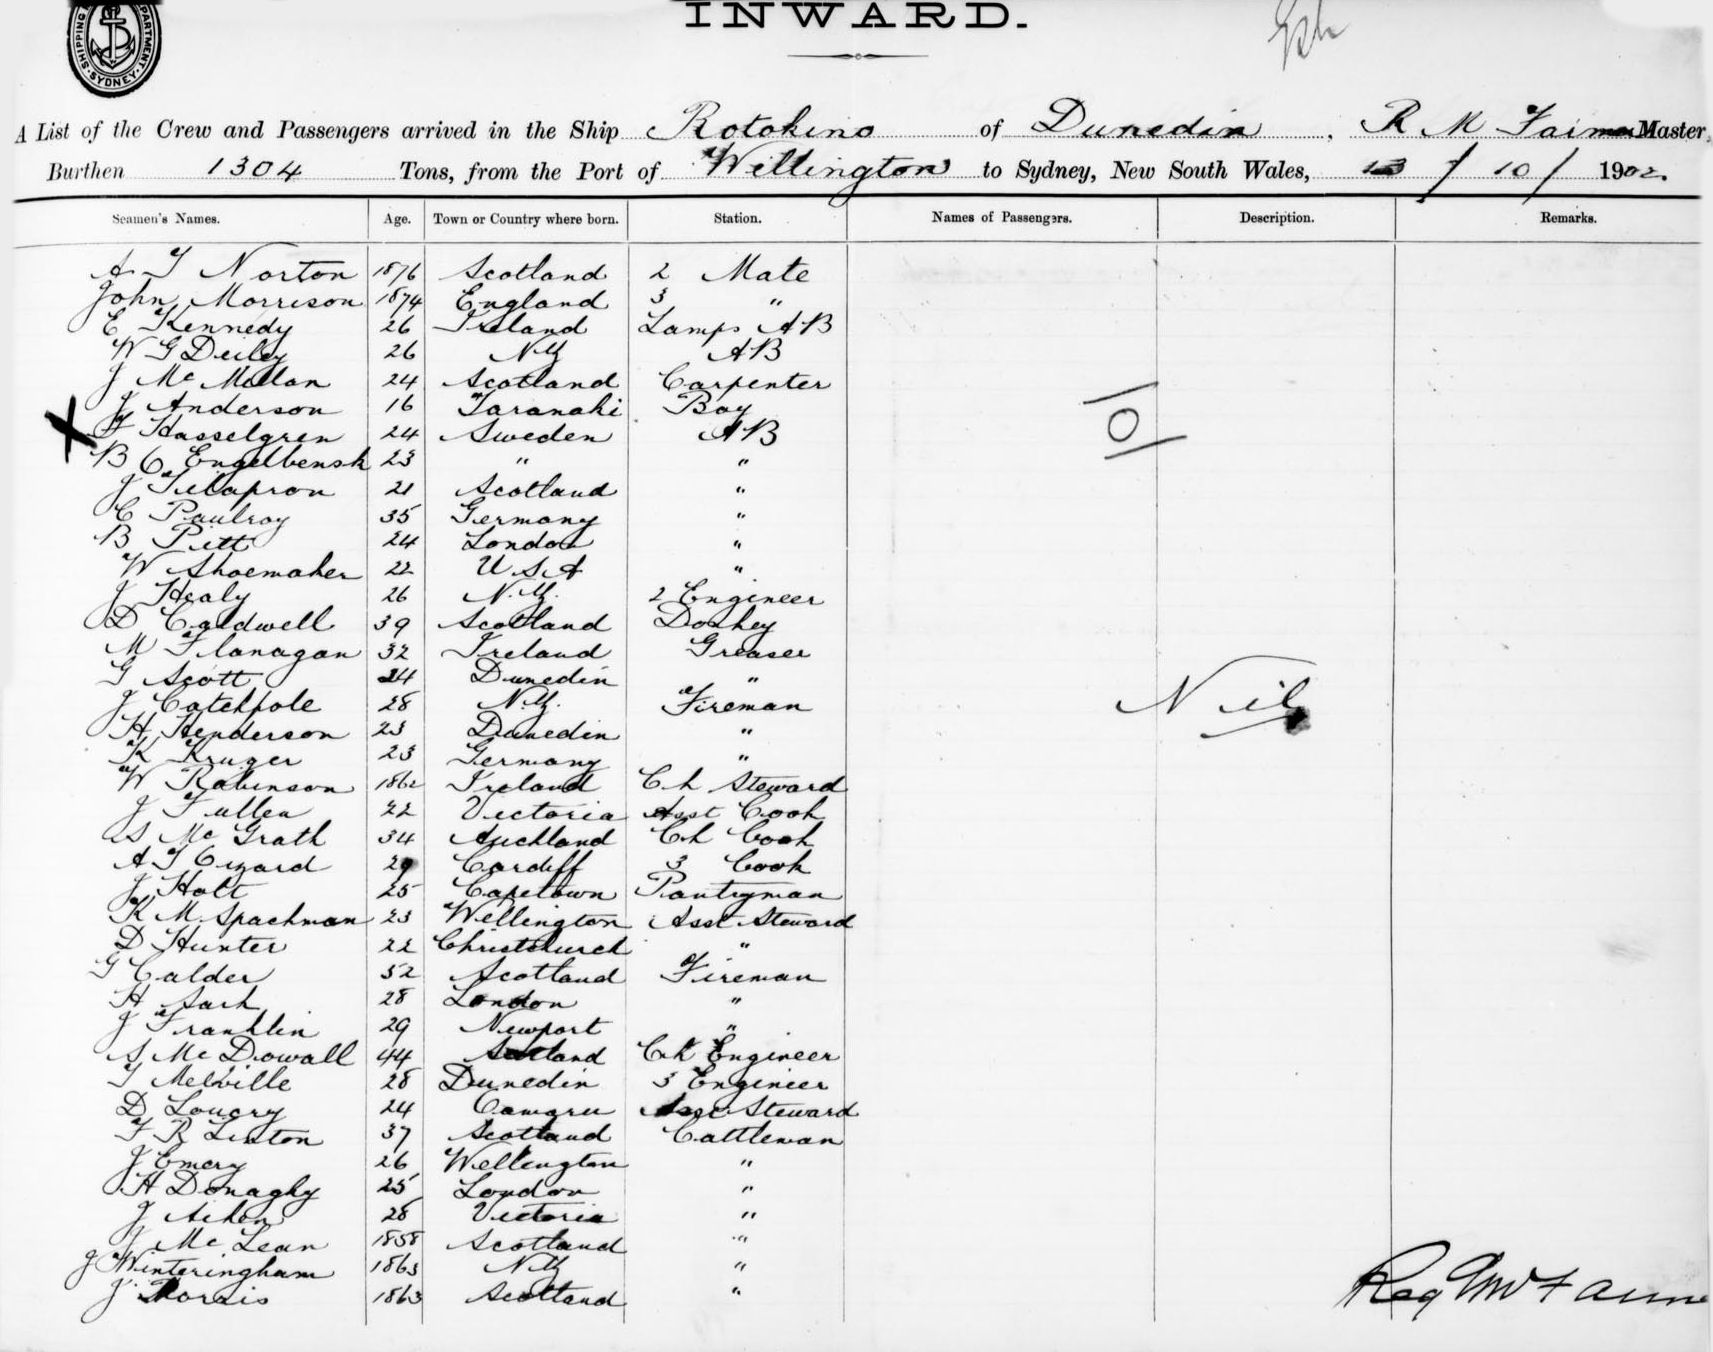 INWARD.
SHIPPING DEPARTMENT. SYDNEY.
A List of the Crew and Passengers arrived in the Ship Rotokino of Dunedin, R M Fairman Master,
Burthen 1304 Tons, from the Port of Wellington to Sydney, New South Wales, 13 / 10 / 1902.
Seamen's Names. Age. Town or Country where born. Station. Names of Passengers. Description. Remarks.
A. T Norton 1876 Scotland 2 Mate
John Morrison 1874 England 3 "
E Kennedy 26 Ireland Lamps AB
W G Deiley 26 NZ AB
J Mc Millan 24 Scotland Carpenter
J Anderson 16 Taranaki Boy
X F Hasselgren 24 Sweden AB
B C Engelbensk 23 " "
J 21 Scotland "
C Paulroy 35 Germany "
B Pitt 24 London "
W Shoemaker 22 U S A "
J Healy 26 N.Z. 2 Engineer
D Caldwell 39 Scotland Donkey
M Flanagan 32 Ireland Greaser
G Scott 24 Dunedin "
J Catchpole 28 N.Z. Fireman
H Henderson 23 Dunedin "
K Kruger 23 Germany "
W Robinson 1862 Ireland Ch Steward
J Fullen 22 Victoria Asst Cook
S Mc Grath 34 Auckland Ch Cook
A T 29 Cardiff 3 Cook
J Holt 25 Capetown Pantryman
K M. Spackman 23 Wellington Asst Steward
D Hunter 22 Christchurch "
G Calder 52 Scotland Fireman
H Sark 28 London "
J Franklin 29 Newport "
S Mc Dowall 44 Scotland Ch Engineer
T Melville 28 Dunedin 3 Engineer
D Loucry 24 Oamaru Asst Steward
F R Linton 37 Scotland Cattleman
J Emery 26 Wellington "
H Donaghy 25 London "
J Aiken 28 Victoria "
J Mc Lean 1858 Scotland "
J Winteringham 1863 NZ "
J Morris 1863 Scotland "
Nil